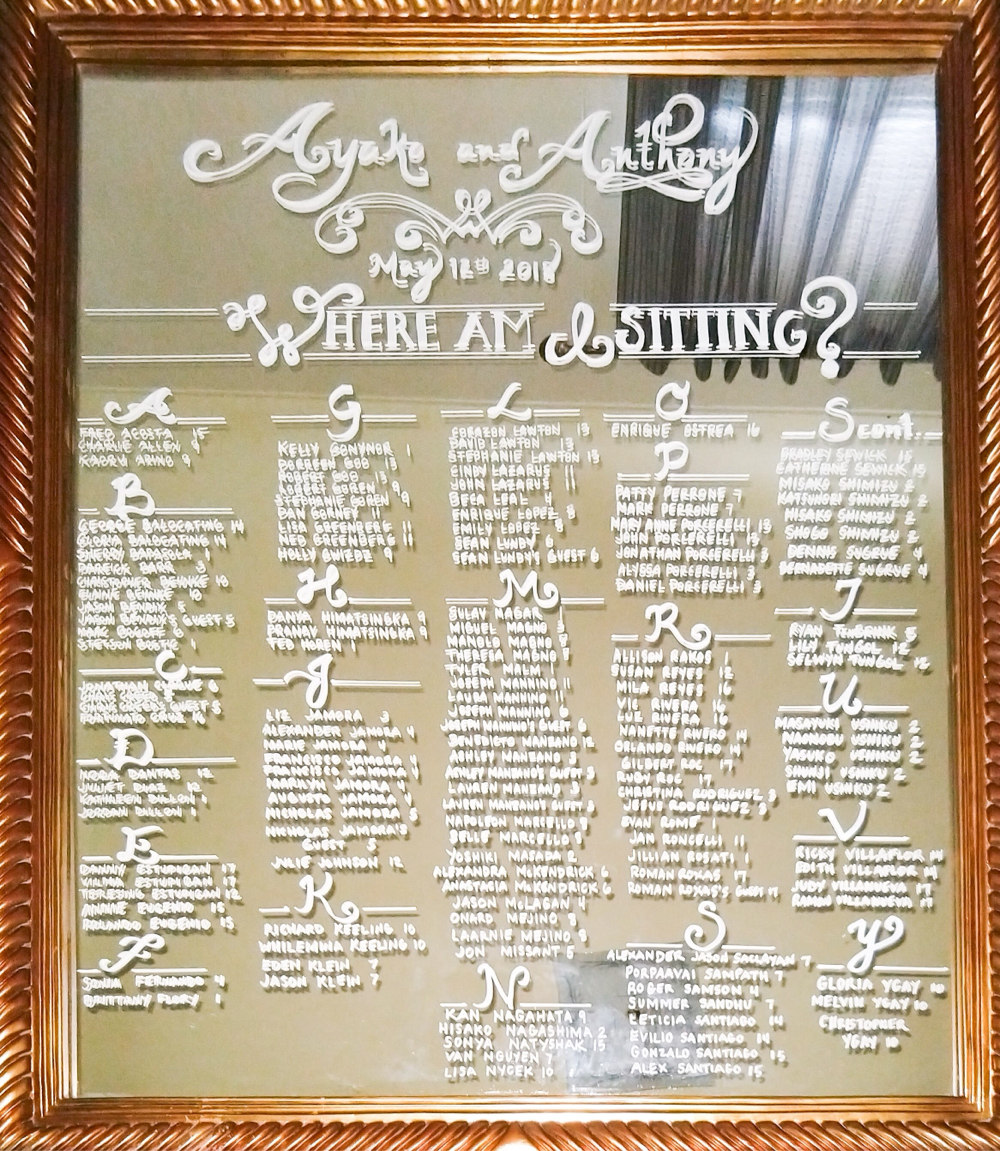 Ayako and Anthony
May 12th 2018
WHERE AM I SITTING?
A
FRED ACOSTA 15
CHARLIE ALLEN 9
9
B
GEORGE BALOGATING 14
GLORIA BALOGATING 14
SHERRY
DARRICK BARR 3
CHRISTOPHER BEHNKE 10
BEHNKE 10
JASON
JASON GUEST 5
C
D
DANTAS 12
JULIET DIAZ 12
KATHLEEN DILLON 1
JORDAN DILLON 1
E
DANNY ESTUPUBAN 17
VILMA ESTUPUBAN 17
ESTUPUBAN 12
ANNIE EUGENIO 15
ROLANDO EUGENIO 15
F
SONIA FERNANDO 4
BRITTANY FLORY 1
G
KELLY GONYNOR 1
DORREEN GOO 13
ROBERT GOO 13
ROBERT GOREN 9
STEPHANIE GOREN 9
DAN GORNEY 11
LISA GREENBERG 11
NED GREENBERG 11
HOLLY GWIZDZ 9
H
DANYA HIMATSINGKA 9
PRANAY HIMATSINGKA 9
TED HOREN 1
J
LIZ JAMORA 3
ALEXANDER JAMORA 4
MARIE JAMORA
FRANCISCO JAMORA 4
JAMORA
JAMORA
AUGUSTO JAMORA
NICHOLAS JAMORA 5
NICHOLAS JAMORA'S
GUEST 5
JULIE JOHNSON 12
K
RICHARD KEELING 10
WHILEMINA KEELING 10
EDEN KLEIN 7
JASON KLEIN 7
L
CORAZON LAWTON 13
DAVID LAWTON 13
STEPHANIE LAWTON 13
CINDY LAZARUS 11
JOHN LAZARUS 11
BECA LEAL 4
ENRIQUE LOPEZ 8
EMILY LOPEZ 8
SEAN LUNDY 6
SEAN LUNDY'S GUEST 6
M
SULAY MAGAR
MAGNO
MANOLO MAGNO
THERESA MAGNO
TYLER MALM
MANNINO 11
LOUISA MANNINO
JOSEPH MANNINO 6
JOSEPH MANNINO'S GUEST 6
BENEDICTO MANZANO 12
ASHLEY MANZANO 3
ASHLEY MANZANO'S GUEST 3
LAUREN MANZANO 3
LAUREN MANZANO'S GUEST 3
NAPOLEON MARCELO
BELLE MARCELLO
YOSHIKI MASADA 2
ALEXANDRA McKENDRICK 6
ANASTACIA McKENDRICK 6
JASON McLAGAN 4
ONARD MEJINO 8
LAARNIE MEJINO 8
JON MISSANT 5
N
KAN NAGAHATA 9
HISAKO NAGASHIMA 2
SONYA NATYSHAK 15
VAN NGUYEN 7
LISA NYCEK 10
O
ENRIQUE OSTREA 16
P
PATTY PERRONE 7
MARK PERRONE 7
MARY ANNE PORCERELLI 13
JOHN PORCERELLI 13
JONATHAN PORCERELLI 3
ALYSSA PORCERELLI 3
DANIEL PORCERELLI 3
R
ALLISON RAKOS 1
DEAN REYES 12
MILA REYES 16
VIC RIVERA 16
LUZ RIVERA 16
NANETTE RIVERO 14
ORLANDO RIVERO 14
GILBERT ROC 17
RUBY ROC 17
CHRISTINA RODRIGUEZ 3
JESUS RODRIGUEZ 3
RYAN ROME 1
JAN RONCELLI 11
JILLIAN ROSATI 1
ROMAN ROXAS 17
ROMAN ROXAS'S GUEST 17
S
ALEXANDER JASON SACLAYAN 7
PORPAAVAI SAMPATH 7
ROGER SAMSON 4
SUMMER SANDHU 7
LETICIA SANTIAGO 14
EVILIO SANTIAGO 14
GONZALO SANTIAGO 15
ALEX SANTIAGO 15
S cont.
BRADLEY SEWICK 15
CATHERINE SEWICK 15
MISAKO SHIMIZU 2
KATSUNORI SHIMIZU 2
MISAKO SHIMIZU 2
SHUGO SHIMIZU 2
DENNIS SUGRUE 4
BERNADETTE SUGRUE 4
T
RYAN TENBRINK 5
LILY TUNGOL 12
SELWYN TUNGOL 12
U
MASAYUKI USHIKU 2
USHIKU 2
USHIKU 2
SHUNJI USHIKU 2
EMI USHIKU 2
V
RICKY VILLAFLOR 14
EDITH VILLAFLOR 14
JUDY VILLANUEVA 17
VILLANUEVA 17
Y
GLORIA YGAY 10
MELVIN YGAY 10
CHRISTOPHER
YGAY 10